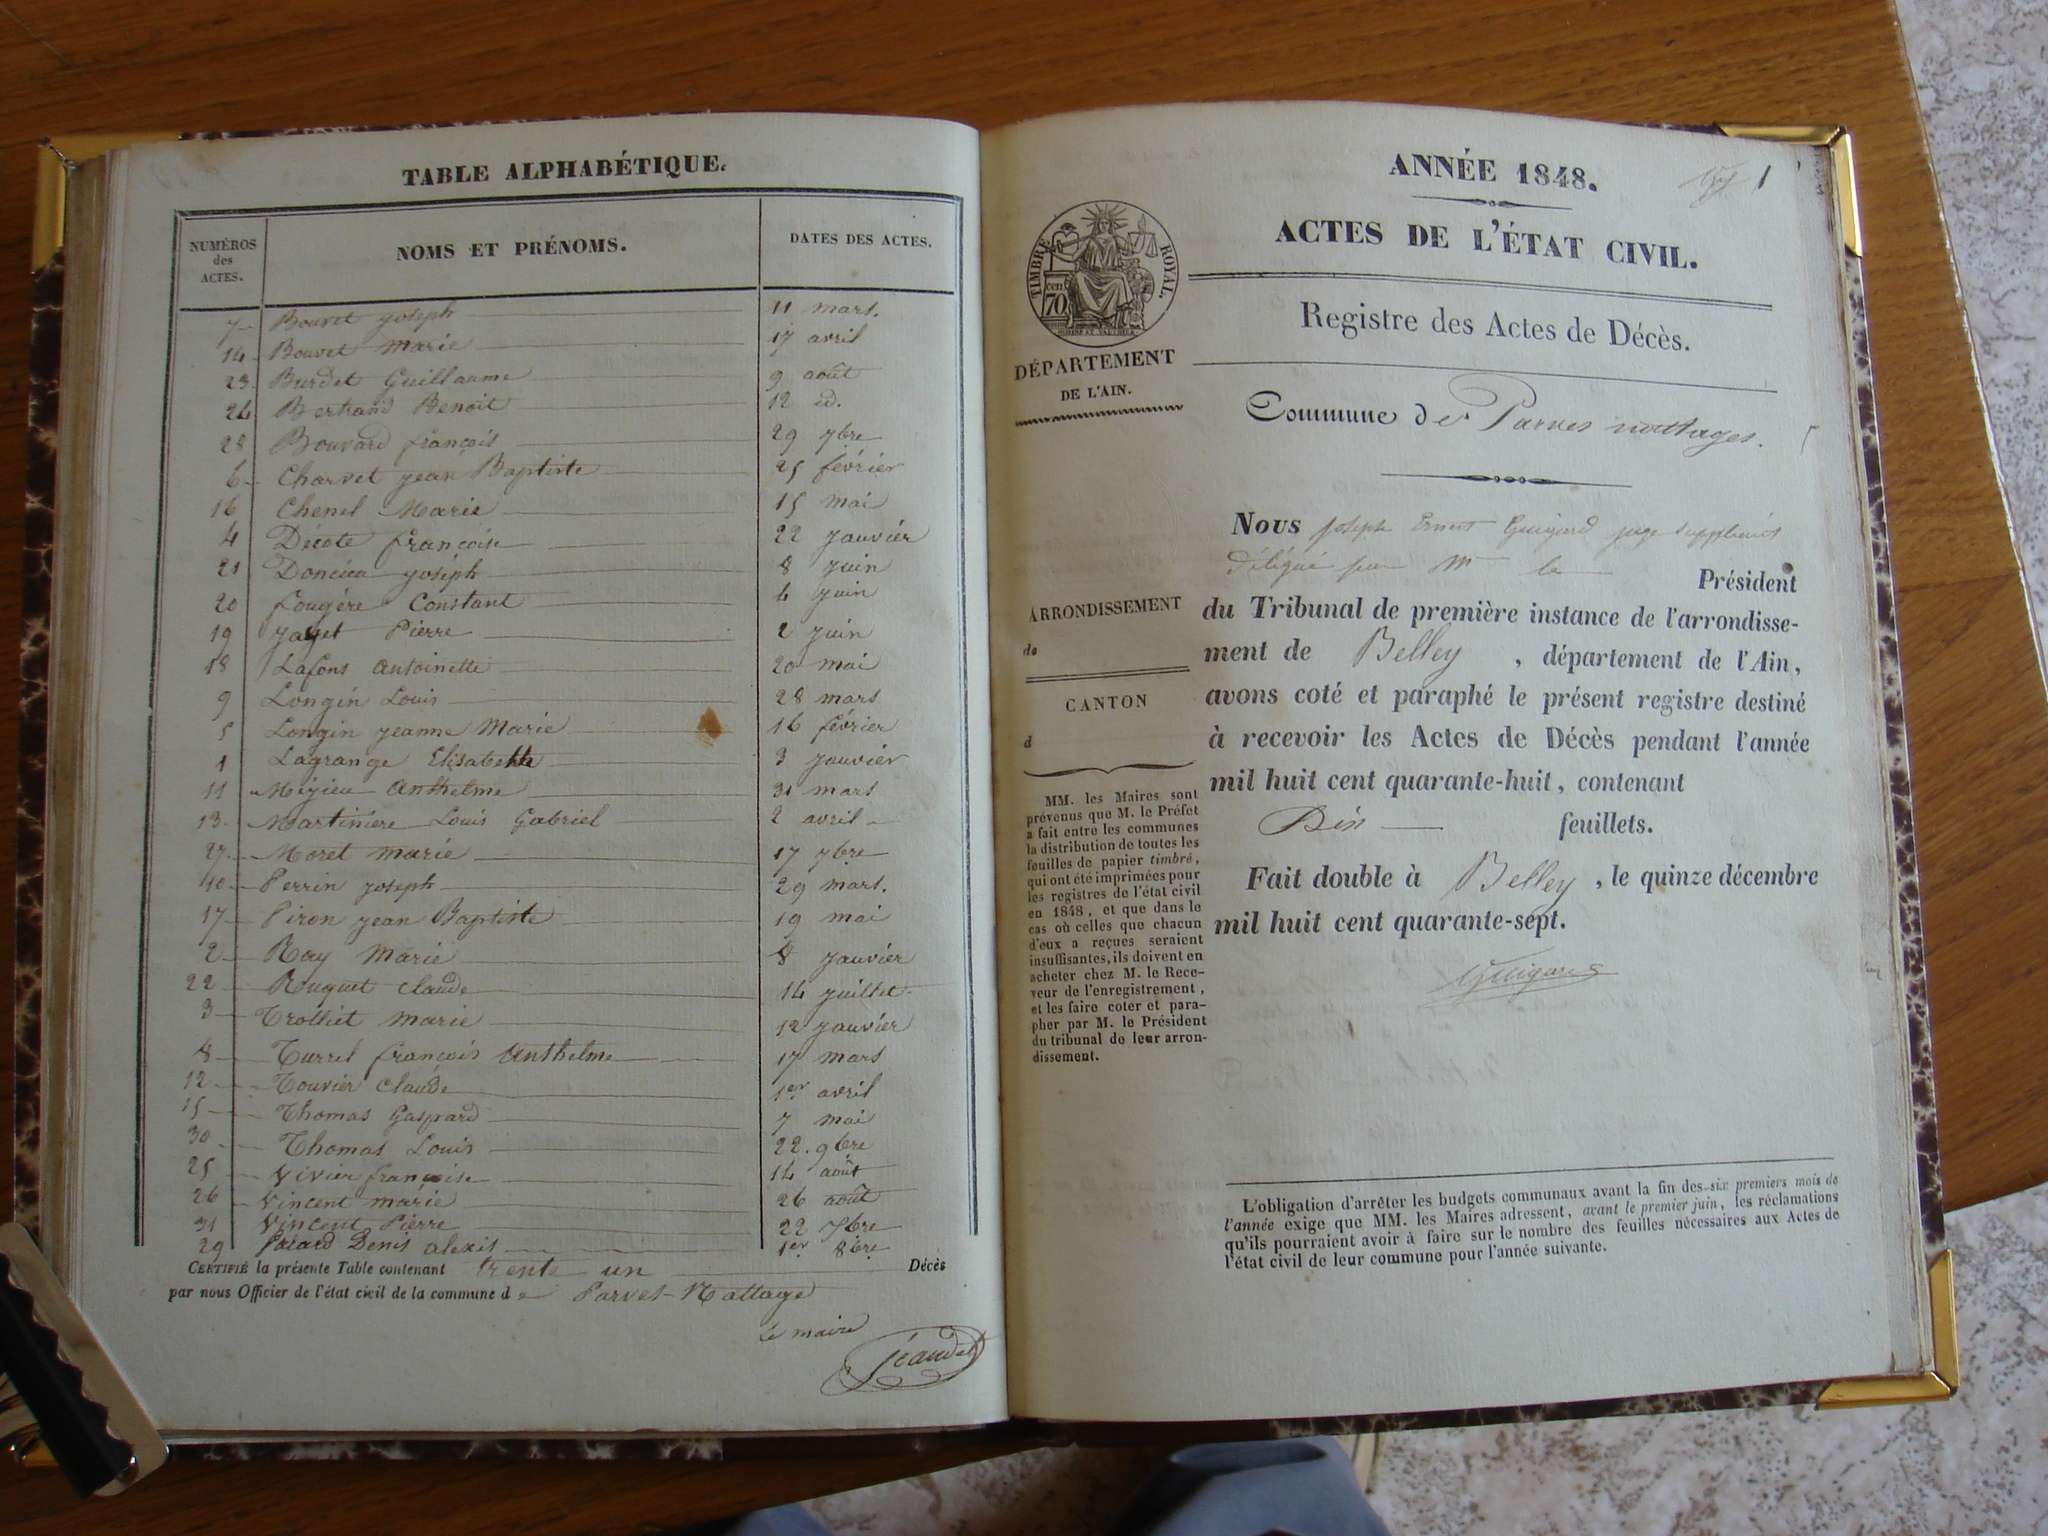 TABLE ALPHABÉTIQUE.
NUMÉROS des ACTES. NOMS ET PRÉNOMS. DATES DES ACTES.
7 Bouvet joseph 11 mars.
14 Bouvet Marie 17 avril
23 Burdet Guillaume 9 août
24 Bertrand Benoit 12 id.
28 Bouvard françois 29 7bre
6 Charvet jean Baptiste 25 février
16 Chenel Marie 15 mai
4 Décote françoise 22 janvier
21 Doncieu joseph 8 juin
20 fougère Constant 6 juin
19 jayet Pierre 2 juin
18 Lafons antoinette 20 mai
9 Longin Louis 28 mars
5 Longin jeanne Marie 16 février
1 Lagrange Elisabeth 3 janvier
11 Mejieu anthelme 31 mars
13 Martinière Louis Gabriel 2 avril
27 Moret marie 17 7bre
10 Perrin joseph 29 mars.
17 Piron jean Baptiste 19 mai
2 Ray Marie 8 janvier
22 Ruguet claude 14 juillet
3 Trolliet marie 12 janvier
8 Turrel françois Anthelme 17 mars
12 Touvier claude 1er avril
15 Thomas Gaspard 7 mai
30 Thomas Louis 22. 9bre
25 Vivier françoise 14 août
26 Vincent marie 26 août
31 Vincent Pierre 22 7bre
29 Denis alexis 1er 8bre
CERTIFIÉ la présente Table contenant trente un Décès
par nous Officier de l'état civil de la commune de Parves-Nattage
Le maire
ANNÉE 1848.
1
ACTES DE L'ÉTAT CIVIL.
TIMBRE ROYAL.
70 cen
Registre des Actes de Décès.
DÉPARTEMENT
DE L'AIN.
Commune de Parves nattages.
Nous joseph Ernest Guigard juge suppléant
délégué par Mr le Président
ARRONDISSEMENT
de
CANTON
d
du Tribunal de première instance de l'arrondisse-
ment de Belley, département de l'Ain,
avons coté et paraphé le présent registre destiné
à recevoir les Actes de Décès pendant l'année
mil huit cent quarante-huit, contenant
Dix feuillets.
Fait double à Belley, le quinze décembre
mil huit cent quarante-sept.
Guigard
MM. les Maires sont
prévenus que M. le Préfet
a fait entre les communes
la distribution de toutes les
feuilles de papier timbré,
qui ont été imprimées pour
les registres de l'état civil
en 1848, et que dans le
cas où celles que chacun
d'eux a reçues seraient
insuffisantes, ils doivent en
acheter chez M. le Rece-
veur de l'enregistrement,
et les faire coter et para-
pher par M. le Président
du tribunal de leur arron-
dissement.
L'obligation d'arrêter les budgets communaux avant la fin des six premiers mois de
l'année exige que MM. les Maires adressent, avant le premier juin, les réclamations
qu'ils pourraient avoir à faire sur le nombre des feuilles nécessaires aux Actes de
l'état civil de leur commune pour l'année suivante.